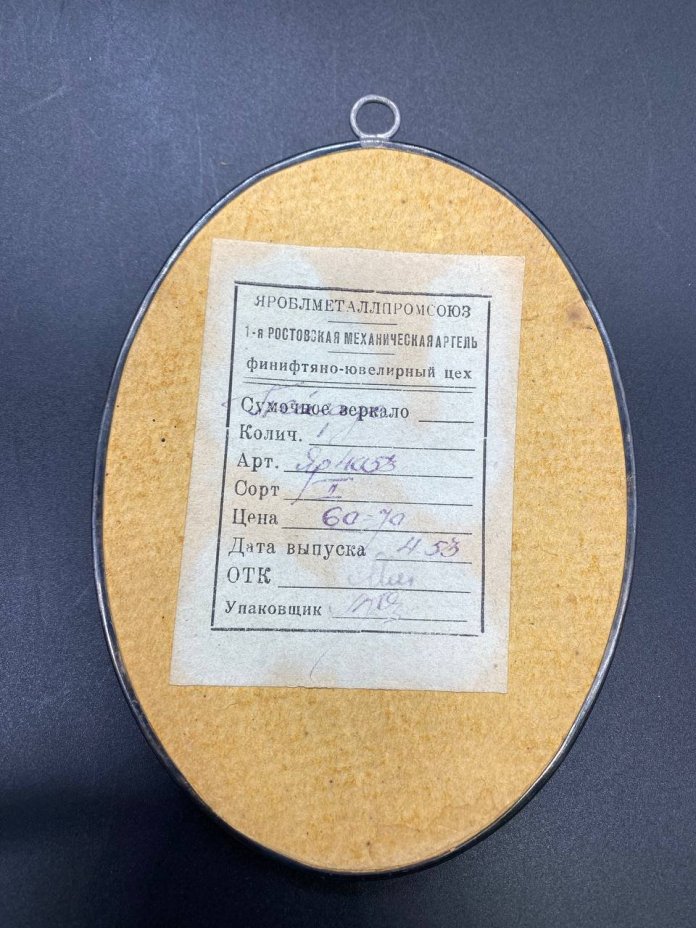 ЯРОБЛМЕТАЛЛПРОМСОЮЗ
1-я РОСТОВСКАЯ МЕХАНИЧЕСКАЯ АРТЕЛЬ
ФИНИФТЯНО-ЮВЕЛИРНЫЙ ЦЕХ
Сумочное зеркало
Колич. 1
Арт.
Сорт I
Цена 60-70
Дата выпуска 4 53
ОТК
Упаковщик